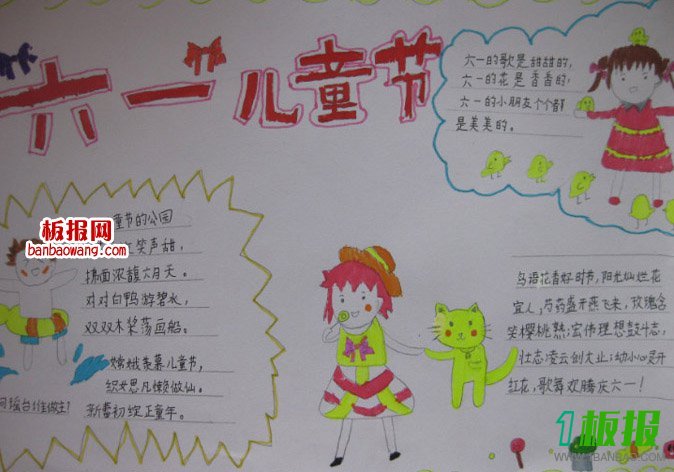 六一儿童节
六一的歌是甜甜的,
六一的花是香香的,
六一的小朋友个个都
是美美的。
童节的公园
笑声甜,
拂面浓馥六月天。
对对白鸭游碧水,
双双木桨荡画船。
嫦娥羡慕儿童节,
织女思凡懒做仙。
新蕾初绽正童年。
鸟语花香好时节,阳光灿烂花
宜人,芍药盛开燕飞来,玫瑰含
笑樱桃熟;宏伟理想鼓斗志,
壮志凌云创大业;幼小心灵开
红花,歌舞欢腾庆六一!
板报网
banbaowang.com
1板报
1BANBAO.COM